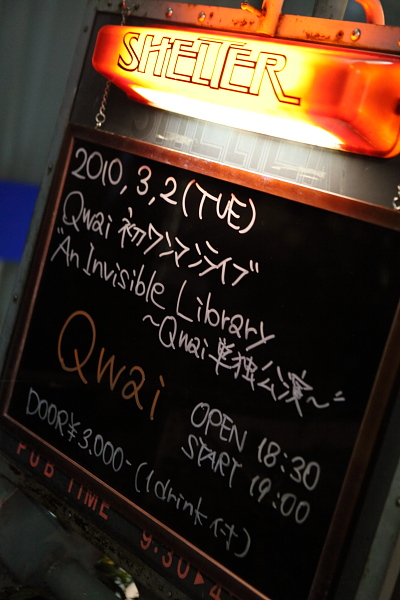 SHELTER
2010, 3, 2 (TUE)
Qwai 初ワンマンライブ
"An Invisible Library
~Qwai 単独公演~"
Qwai
OPEN 18:30
START 19:00
DOOR ¥3,000- (1drink付)
PUB TIME 9:30▶4